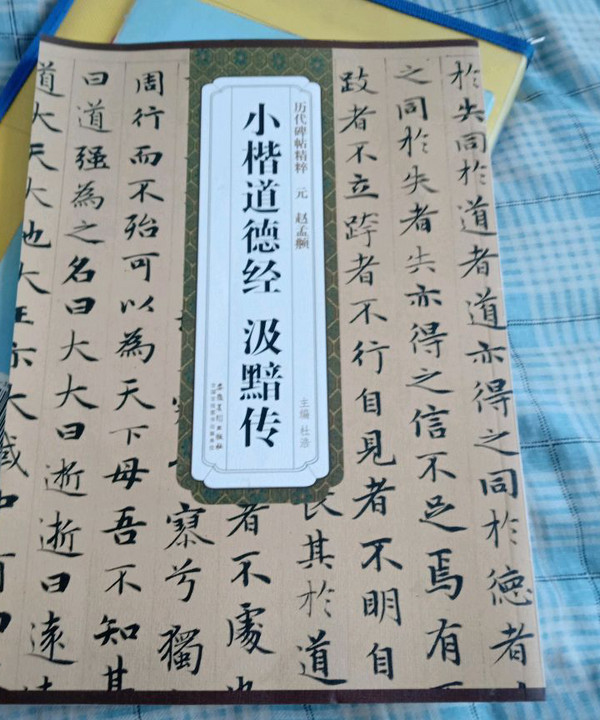 小楷道德经 汲黯传
历代碑帖精粹 元 赵孟頫
主编 杜浩
安徽美术出版社
全国百佳图书出版单位
於失同於道者道亦得之同於德者
之同於失者失亦得之信不足焉有
跂者不立跨者不行自見者不明自
長其於道
者不處也
寥兮獨
周行而不殆可以為天下母吾不知其
曰道强為之名曰大大曰逝逝曰遠
道大天大地大王亦大域中